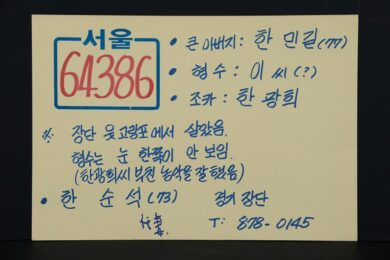 서울
64386
• 큰아버지: 한 민길(77)
• 형수: 이 씨(?)
• 조카: 한 광희
※ 장단 읍 고랑포에서 살았음.
형수는 눈 한쪽이 안 보임.
(한광희씨 부친 농악을 잘 했음)
• 한 순 석(73) 경기 장단
T: 878-0145